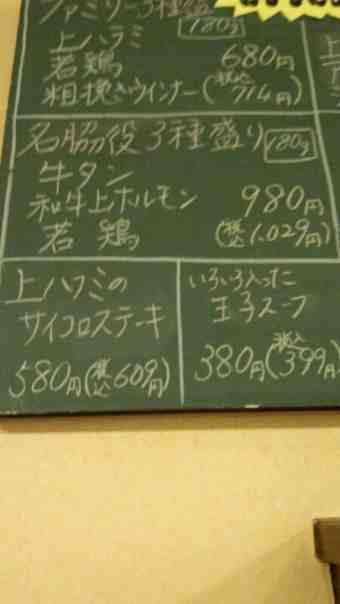 ファミリー3種盛
180g
上ハラミ
若鶏 680円
粗挽きウインナー(税込714円)
名脇役3種盛り 180g
牛タン
和牛上ホルモン 980円
若鶏 (税込1,029円)
上ハラミの
サイコロステーキ
580円(税込609円)
いろいろ入った
玉子スープ
380円(税込399円)